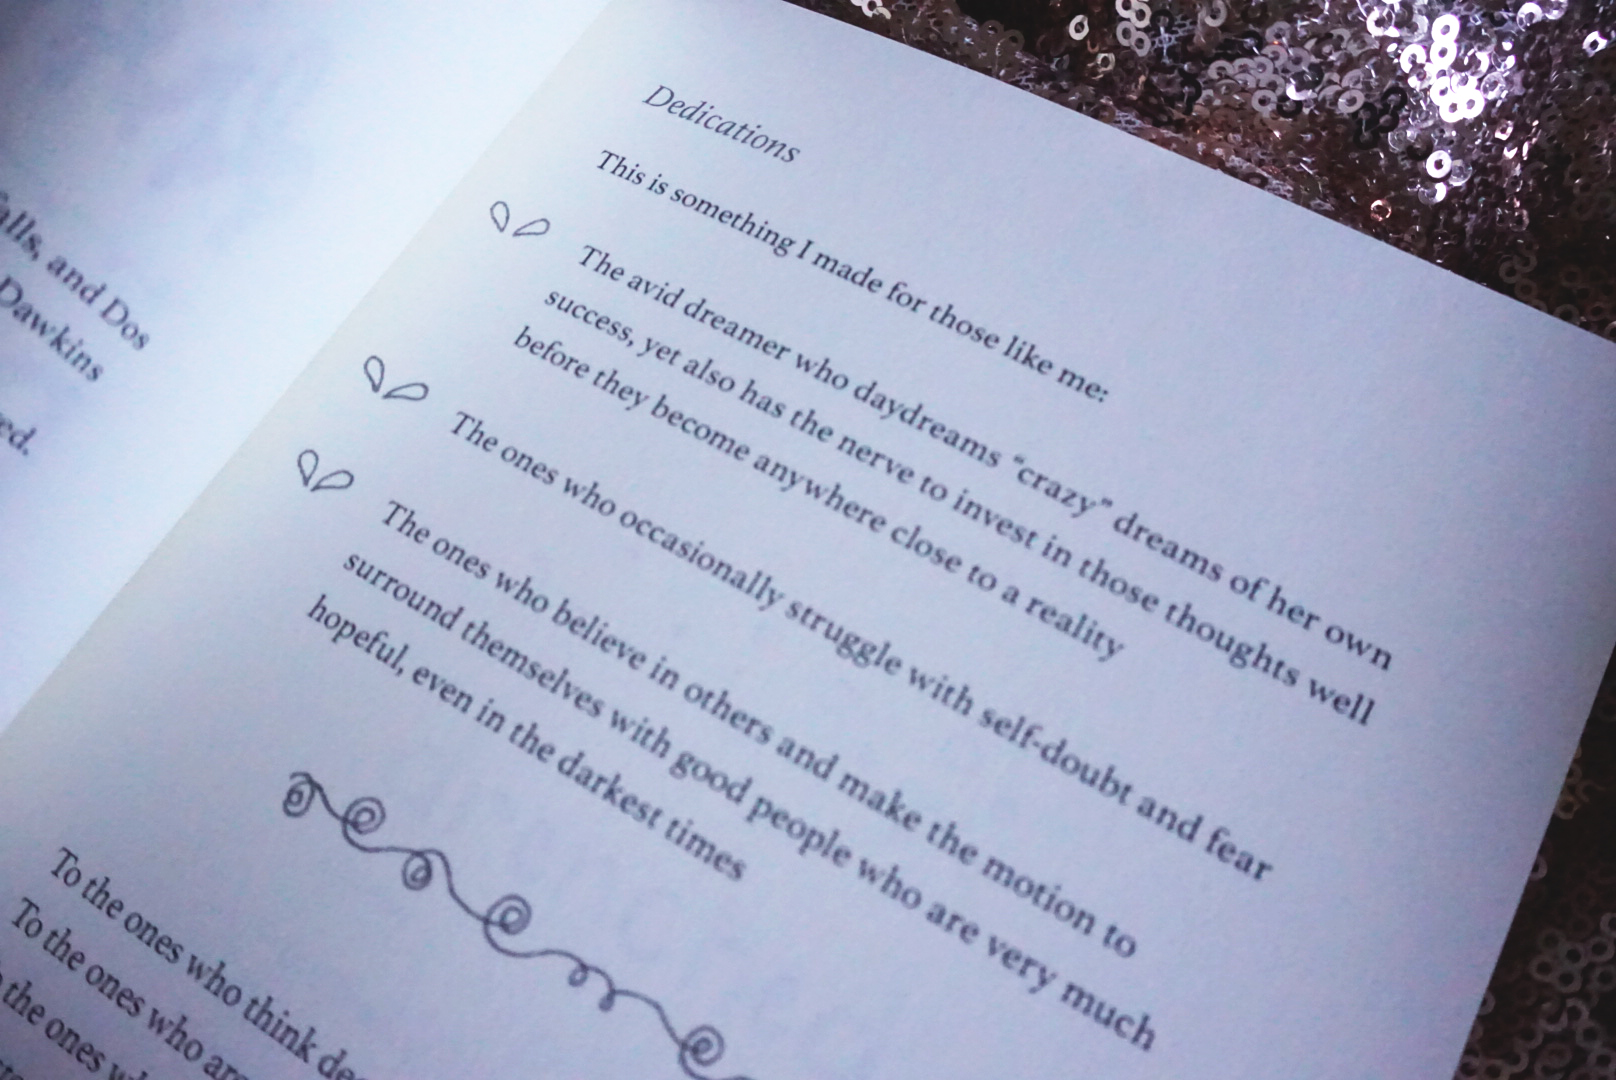 alls, and Dos
Dawkins
ed.
Dedications
This is something I made for those like me:
The avid dreamer who daydreams “crazy” dreams of her own
success, yet also has the nerve to invest in those thoughts well
before they become anywhere close to a reality
The ones who occasionally struggle with self-doubt and fear
The ones who believe in others and make the motion to
surround themselves with good people who are very much
hopeful, even in the darkest times
To the ones who think
To the ones who are
the ones